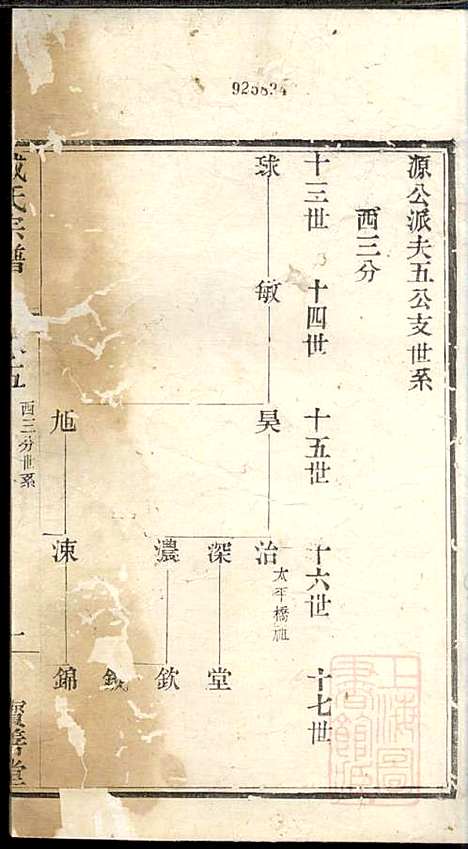 925834
源公派夫五公支世系
西三分
十三世
十四世
十五世
十六世
十七世
球
敏
昊
治
太平橋
深
堂
濃
欽
涑
錦
氏宗譜
五
西三分世系
一
上海圖書館藏